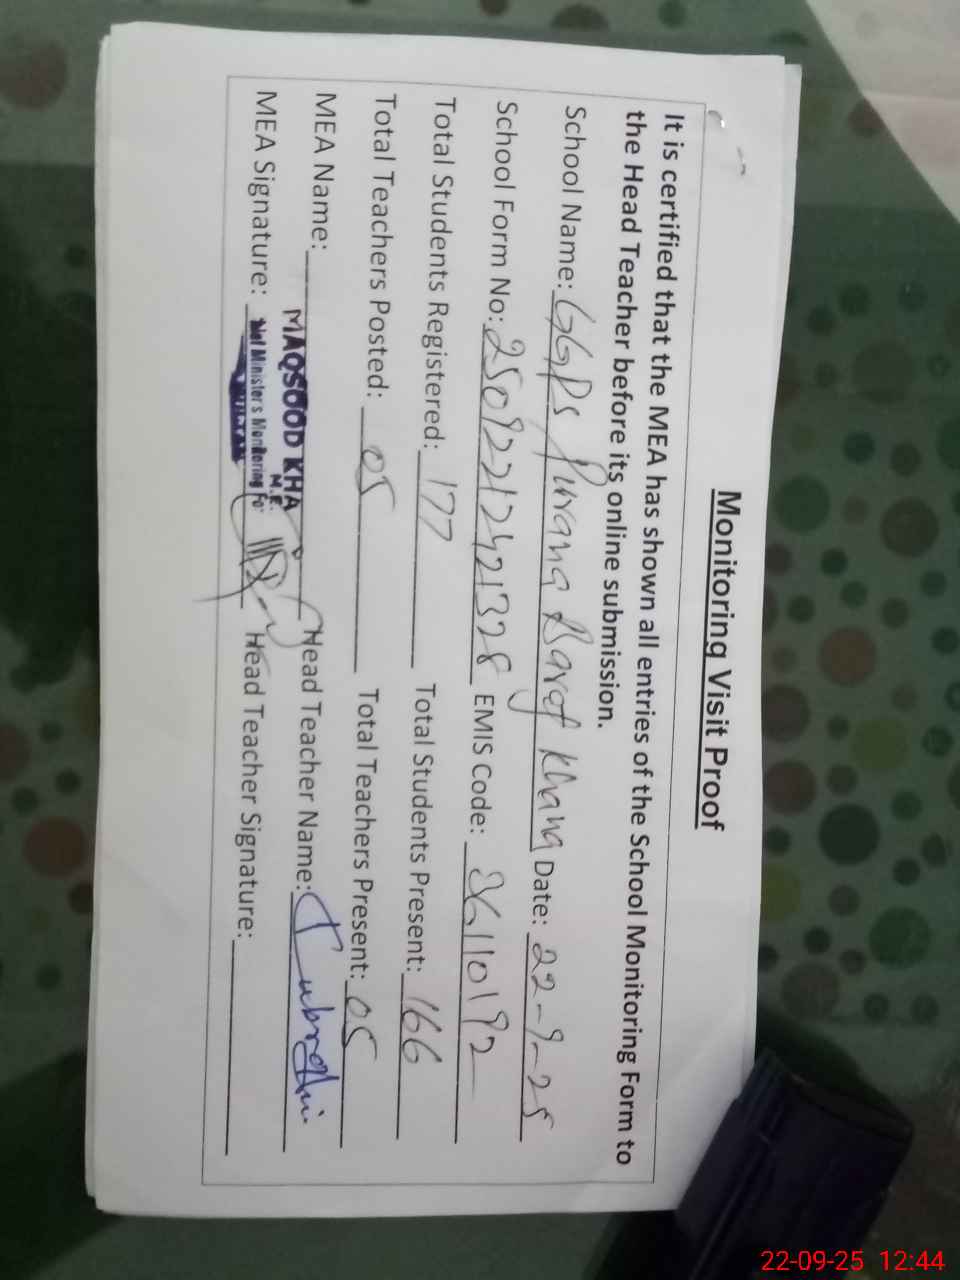 Monitoring Visit Proof
It is certified that the MEA has shown all entries of the School Monitoring Form to
the Head Teacher before its online submission.
School Name: GGPS Purana Baraf Khana Date: 22-9-25
School Form No: 25092212421328 EMIS Code: 36110192
Total Students Registered: 177 Total Students Present: 166
Total Teachers Posted: 05 Total Teachers Present: 05
MEA Name: MAQSOOD KHA Head Teacher Name:
M.E.
MEA Signature: Minister's Monitoring Fo Head Teacher Signature:
22-09-25 12:44